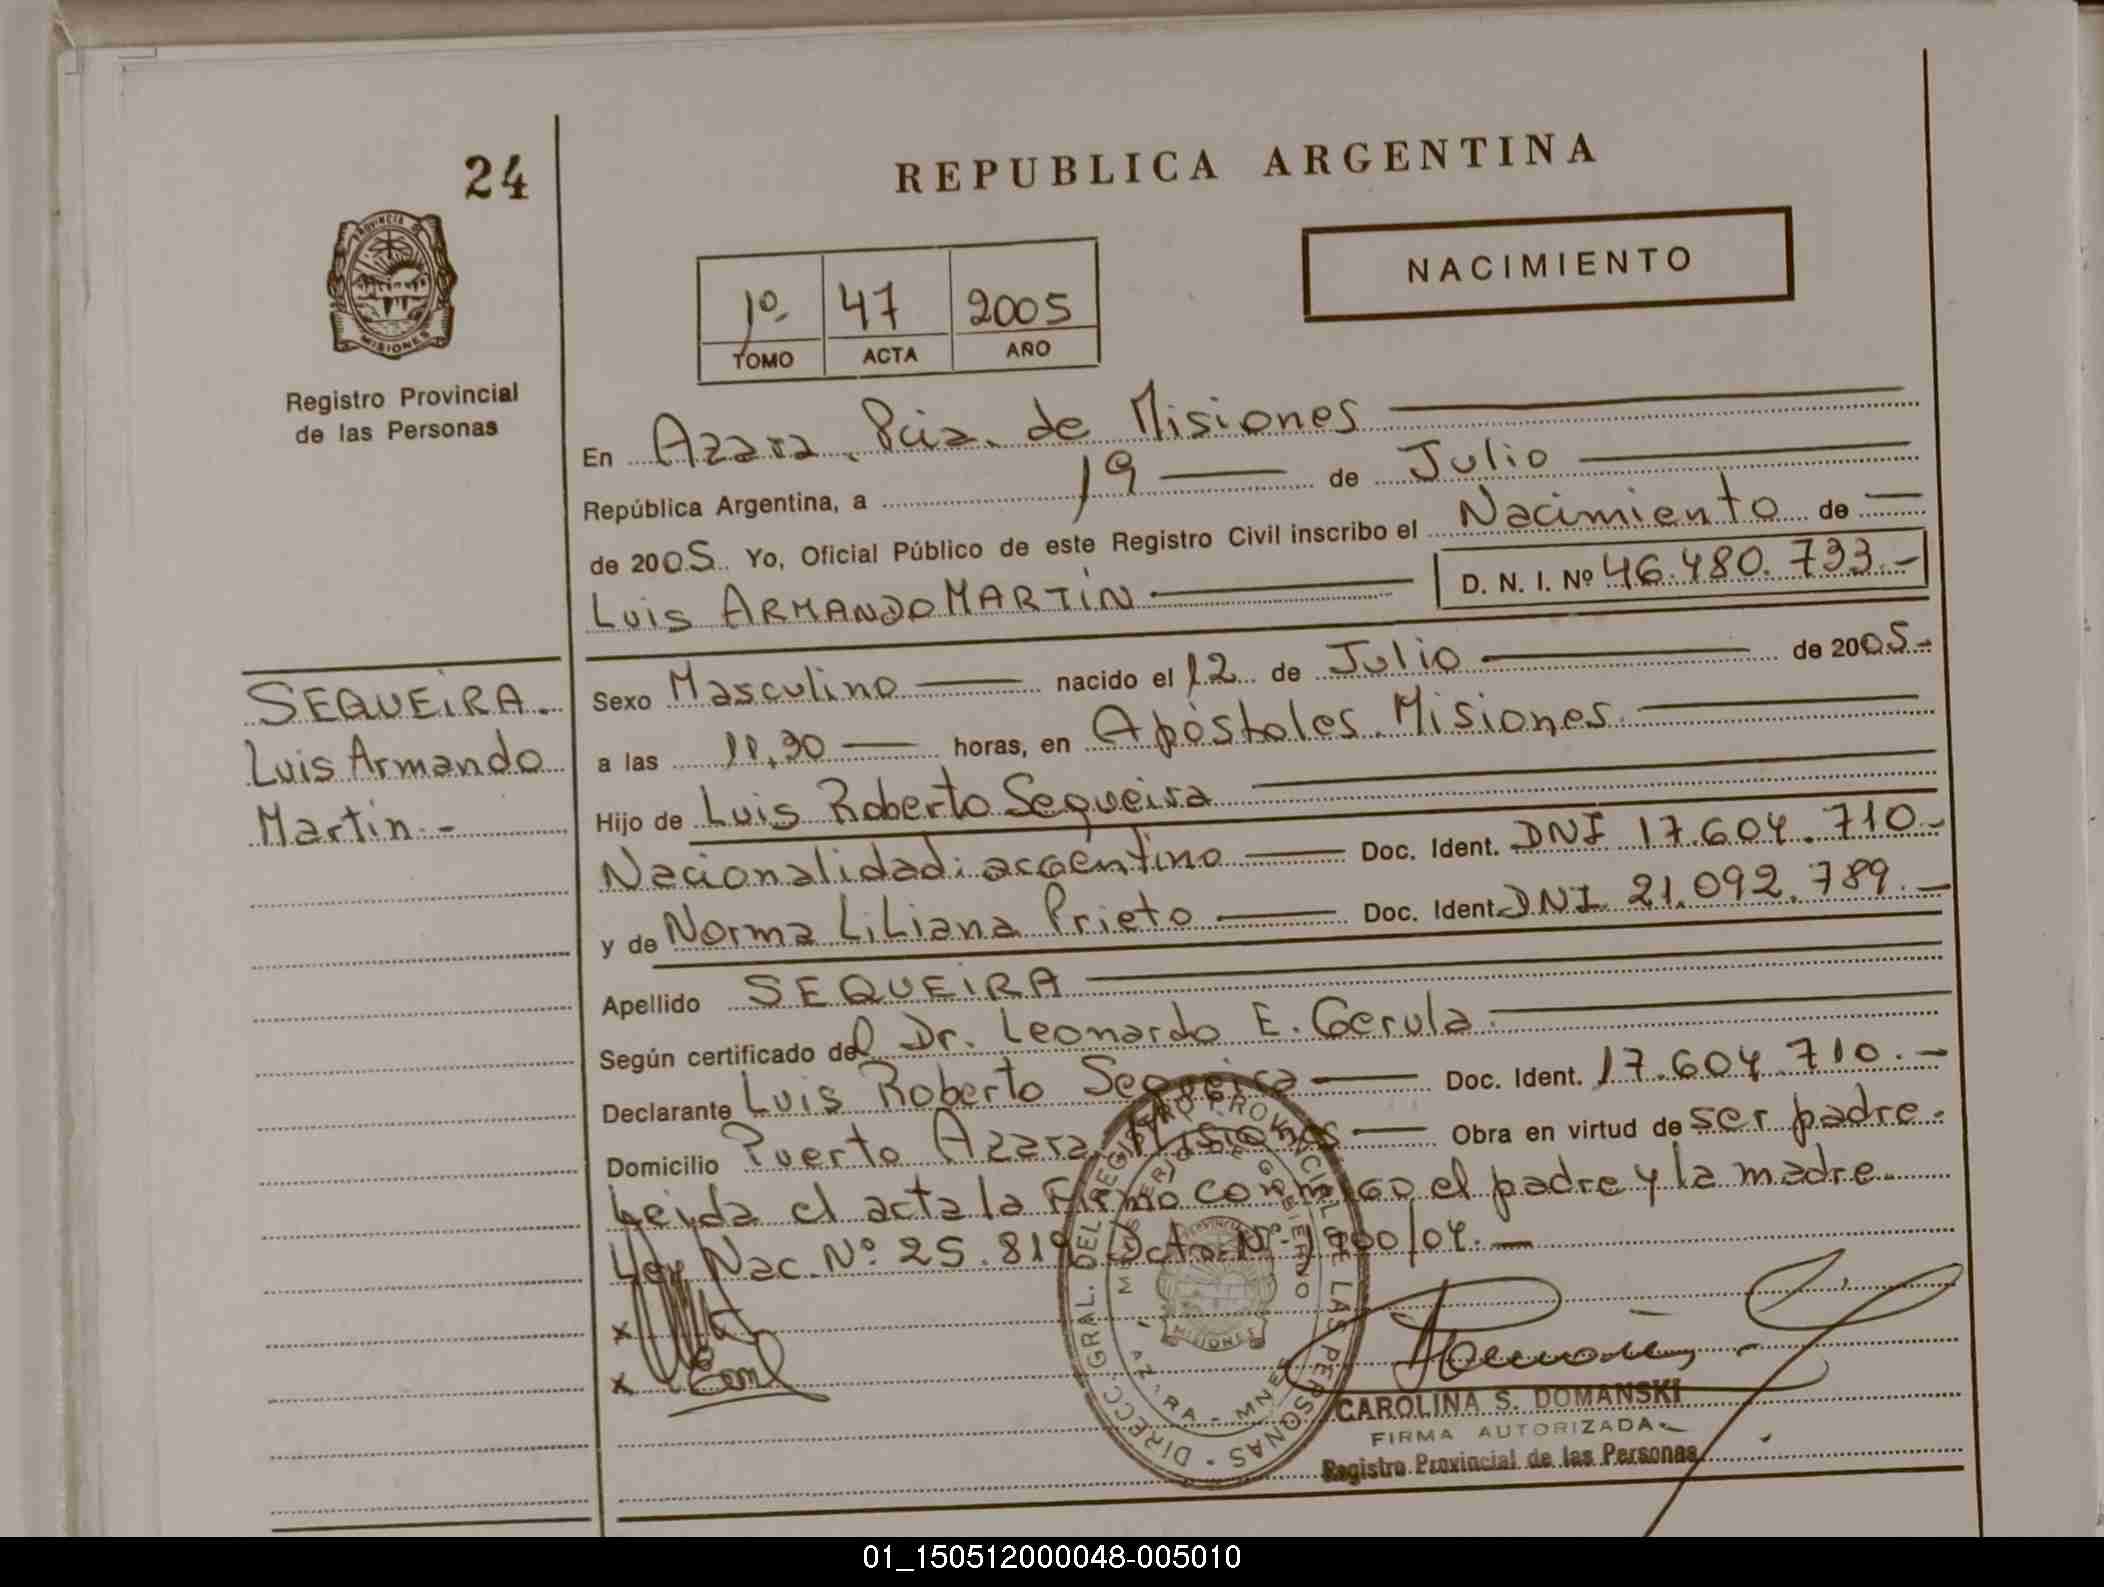 24
REPUBLICA ARGENTINA
NACIMIENTO
1º 47 2005
TOMO ACTA AÑO
PROVINCIA DE
MISIONES
Registro Provincial
de las Personas
En Azara, Pcia. de Misiones
República Argentina, a 19 de Julio
de 2005. Yo, Oficial Público de este Registro Civil inscribo el Nacimiento de
Luis ARMANDO MARTÍN D. N. I. Nº 46.480.733.-
SEQUEIRA.
Luis Armando
Martín.-
Sexo Masculino nacido el 12 de Julio de 2005.-
a las 11,30 horas, en Apóstoles. Misiones.
Hijo de Luis Roberto Sequeira
Nacionalidad: argentino Doc. Ident. DNI 17.604.710.-
y de Norma Liliana Prieto Doc. Ident. DNI 21.092.789.-
Apellido SEQUEIRA
Según certificado del Dr. Leonardo E. Gerula.
Declarante Luis Roberto Sequeira Doc. Ident. 17.604.710.-
Domicilio Puerto Azara, Misiones Obra en virtud de ser padre.
Leída el acta la Firmo conmigo, el padre y la madre.
Ley Nac. Nº 25.819 Dcto. Nº 1900/04.-
x
x
DIRECC. GRAL. DEL REGISTRO PROVINCIAL DE LAS PERSONAS
MINISTERIO DE GOBIERNO
AZARA - MNES
MISIONES
CAROLINA S. DOMANSKI
FIRMA AUTORIZADA
Registro Provincial de las Personas
01_150512000048-005010